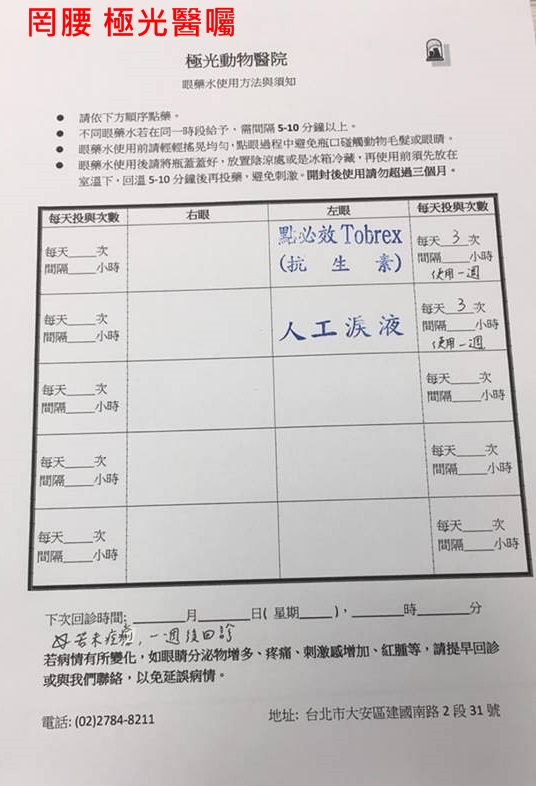 罔腰 極光醫囑
極光動物醫院
眼藥水使用方法與須知
● 請依下方順序點藥。
● 不同眼藥水若在同一時段給予，需間隔 5-10 分鐘以上。
● 眼藥水使用前請輕輕搖晃均勻，點眼過程中避免瓶口碰觸動物毛髮或眼睛。
● 眼藥水使用後請將瓶蓋蓋好，放置陰涼處或是冰箱冷藏，再使用前須先放在
室溫下，回溫 5-10 分鐘後再投藥，避免刺激。開封後使用請勿超過三個月。
每天投與次數 右眼 左眼 每天投與次數
每天____次 點必效 Tobrex 每天 3 次
間隔____小時 (抗 生 素) 間隔____小時
使用一週
每天____次 人工淚液 每天 3 次
間隔____小時 間隔____小時
使用一週
每天____次 每天____次
間隔____小時 間隔____小時
每天____次 每天____次
間隔____小時 間隔____小時
每天____次 每天____次
間隔____小時 間隔____小時
下次回診時間: ______月______日( 星期____ )，______時______分
若未痊癒，一週後回診
若病情有所變化，如眼睛分泌物增多、疼痛、刺激感增加、紅腫等，請提早回診
或與我們聯絡，以免延誤病情。
電話: (02)2784-8211 地址: 台北市大安區建國南路 2 段 31 號